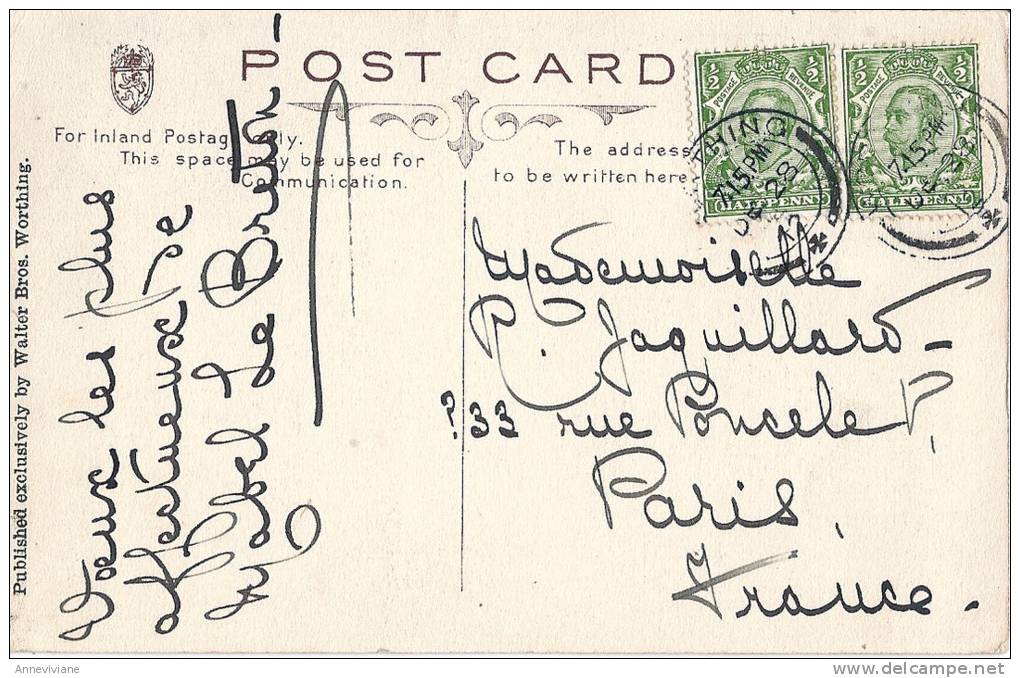 POST CARD
For Inland Postage Only.
This space may be used for
Communication.
The address
to be written here
½ POSTAGE REVENUE ½
HALFPENNY
½ POSTAGE REVENUE ½
HALFPENNY
THING
7.15 PM
28
12
7.15 PM
Published exclusively by Walter Bros. Worthing.
Voeux les plus
affectueux de
Mabel Le Breton
Mademoiselle
P. Jaquillard
?33 rue Poncelet,
Paris,
France.
Anneviviane
delcampe.net